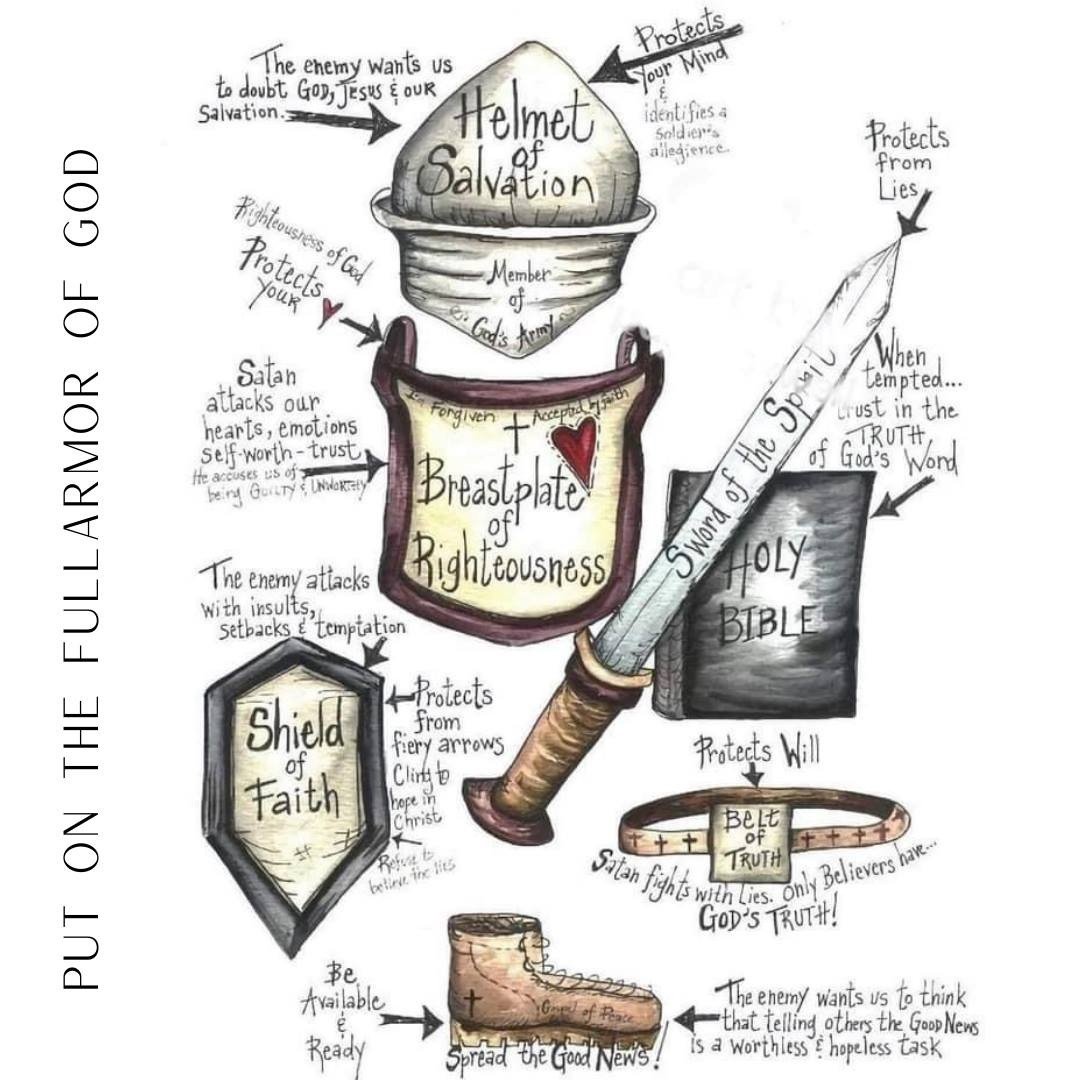 PUT ON THE FULLARMOR OF GOD
The enemy wants us
to doubt GOD, Jesus & our
Salvation.
Protects
Your Mind
&
identifies a
Soldier's
allegience.
Helmet
of
Salvation
Member
of
God's Army
Protects
from
Lies
Righteousness of God
Protects
your
Satan
attacks our
hearts, emotions
self-worth-trust
He accuses us of
being GUILTY & UNWORTHY
I'm Forgiven
Accepted by faith
Breastplate
of
Righteousness
Sword of the Spirit
When
tempted...
trust in the
TRUTH
of God's Word
HOLY
BIBLE
The enemy attacks
with insults,
setbacks & temptation
Shield
of
Faith
Protects
from
fiery arrows
Cling to
hope in
Christ
Refuse to
believe the lies
Protects Will
BELT
of
TRUTH
Satan fights with Lies. Only Believers have...
GOD'S TRUTH!
Be
Available
&
Ready
Gospel of Peace
Spread the Good News!
The enemy wants us to think
that telling others the Good News
is a worthless & hopeless task